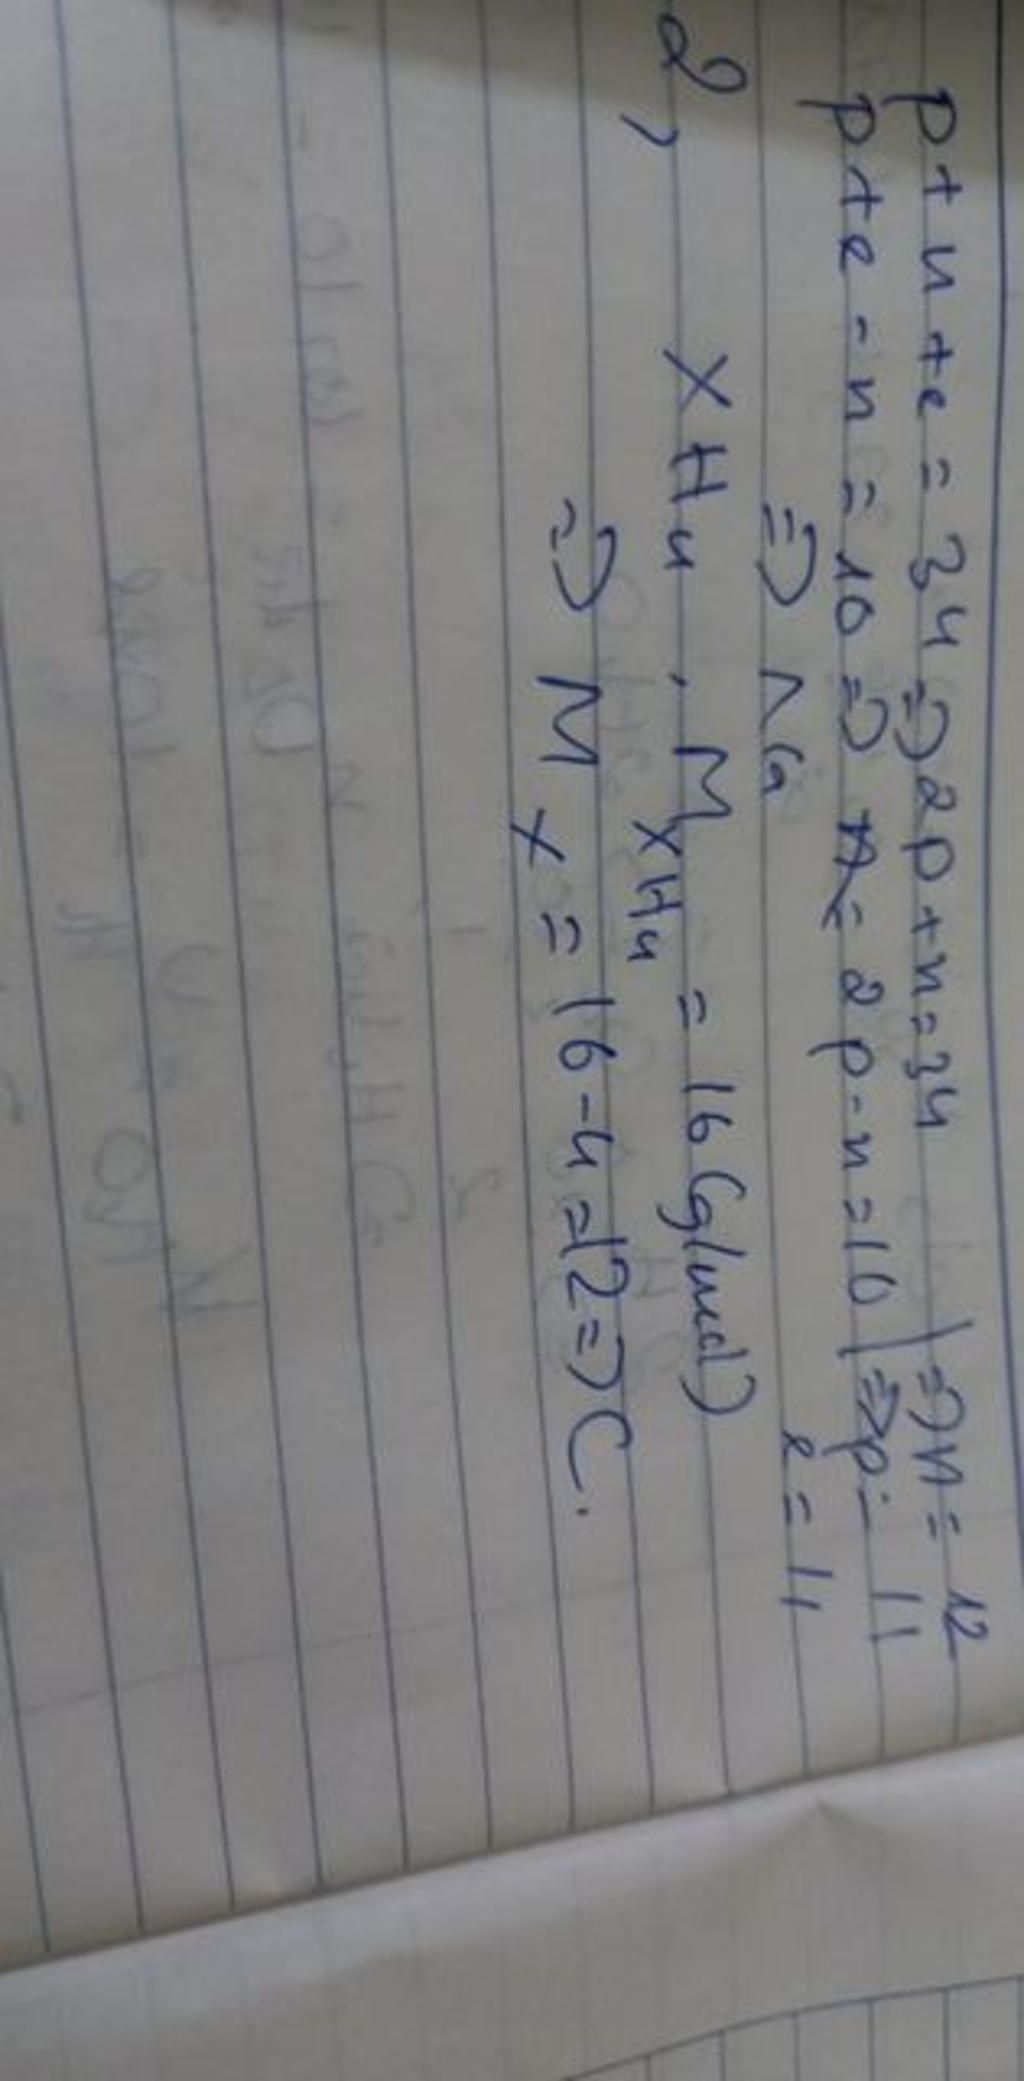 p + n + e = 34 => 2p + n = 34 | => n = 12
p + e - n = 10 => = 2p - n = 10 | => p = 11
=> Na e = 11
2, XH4, M XH4 = 16 (g/mol)
=> M X = 16 - 4 = 12 => C.